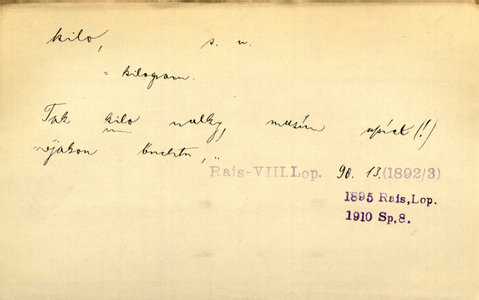 kilo, s. n.
= kilogram.
Tak kilo mouky, musím upéct (!)
nějakou buchtu,
Rais-VIII.Lop. 90. 13. (1892/3)
1895 Rais,Lop.
1910 Sp,8.